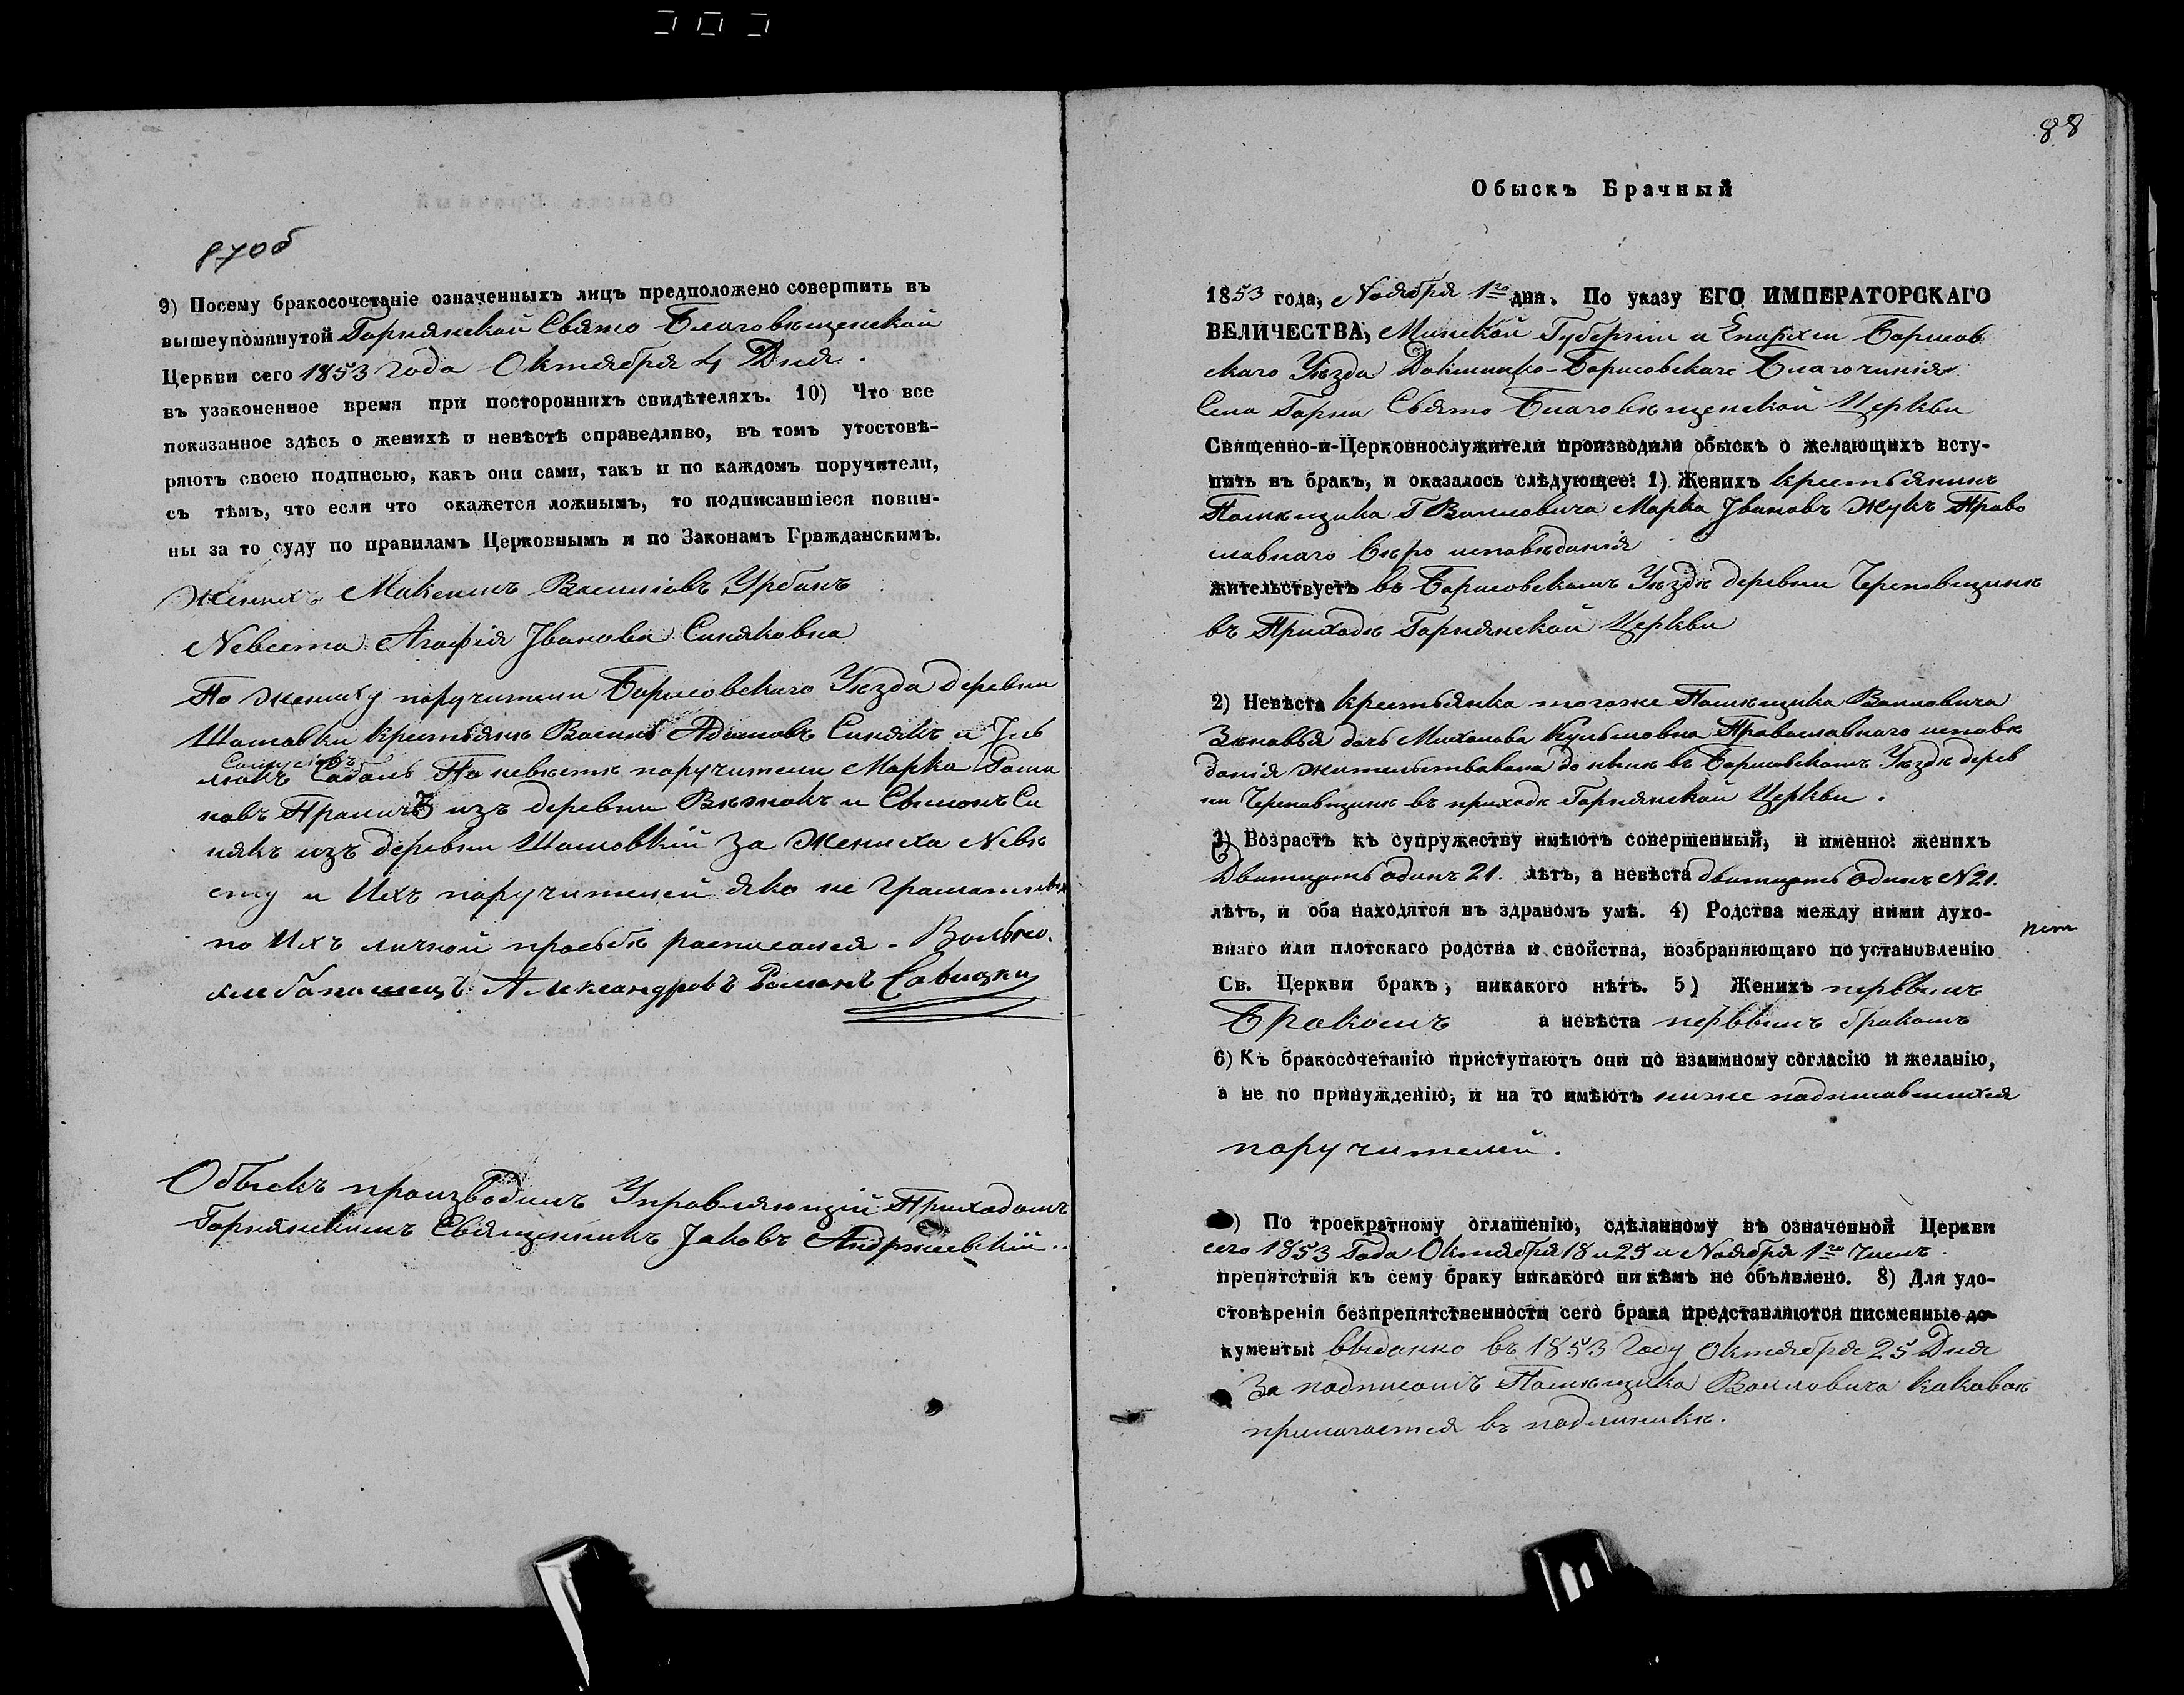 87об
9) Посему бракосочетаніе означенныхъ лицъ предположено совершить въ
вышеупомянутой Горнянской Свято Благовѣщенской
Церкви сего 1853 года Октября 4 Дня.
въ узаконенное время при постороннихъ свидѣтеляхъ. 10) Что все
показанное здѣсь о женихѣ и невѣстѣ справедливо, въ томъ утостовѣ-
ряютъ своею подписью, какъ они сами, такъ и по каждомъ поручители,
съ тѣмъ, что если что окажется ложнымъ, то подписавшіеся повин-
ны за то суду по правиламъ Церковнымъ и по Законамъ Гражданскимъ.
Женихъ Максимъ Васильовъ Урбанъ
Невеста Агафія Іванова Синяковна
По жениху поручители Борисовскаго Уѣзда деревни
крестьяне Василь Адамовъ Синякъ и
Соболь По невѣстѣ поручители Марко Рома
новъ изъ деревни и Сымонъ Си
някъ изъ деревни за Жениха Невѣ
сту и Ихъ поручителей яко не
по Ихъ личной просьбѣ росписался - Вольно.
Александровъ Романъ Савицки
Обыскъ производилъ Управляющій Приходомъ
Горнянскимъ Священникъ Іаковъ Андржеевскій..
88
Обыскъ Брачный
1853 года, Ноября 1го дня. По указу ЕГО ИМПЕРАТОРСКАГО
ВЕЛИЧЕСТВА, Минской Губерніи и Епархіи Борисов
скаго Уѣзда Докшицко-Борисовскаго Благочинія
Села Горна Свято Благовѣщенской Церкви
Священно-и-Церковнослужители производили обыскъ о желающихъ всту-
пить въ бракъ, и оказалось слѣдующее: 1) Женихъ крестьянинъ
Помѣщика Г Воиловича Марко Івановъ Жукъ Право
славнаго вѣро исповѣданія
жительствуетъ въ Борисовскомъ Уѣздѣ деревни Череповщинѣ
въ Приходѣ Горнянской Церкви
2) Невѣста крестьянка тогоже Помѣщика Воиловича
Зѣновья дочь Православнаго исповѣ
данія жительствовала до нынѣ въ Борисовскомъ Уѣздѣ дерев
ни Череповщинѣ въ приходѣ Горнянской Церкви.
3) Возрастъ къ супружеству имѣютъ совершенный, и именно: женихъ
Дватцать одинъ 21. лѣтъ, а невѣста дватцать одинъ N21.
лѣтъ, и оба находятся въ здравомъ умѣ. 4) Родства между ними духо-
внаго или плотскаго родства и свойства, возбраняющаго по установленію
Св. Церкви бракъ, никакого нѣтъ. 5) Женихъ первымъ
Бракомъ а невѣста первымъ бракомъ
6) Къ бракосочетанію приступаютъ они по взаимному согласію и желанію,
а не по принужденію, и на то имѣютъ ниже подписавшихся
поручителей.
) По троекратному оглашенію, сдѣланному въ означенной Церкви
сего 1853 Года Октября 18 и 25 и Ноября 1го Числъ.
препятствія къ сему браку никакого ни кѣмъ не объявлено. 8) Для удо-
стовѣренія безпрепятственности сего брака представляются писменные до-
кументы: выданно въ 1853 Году Октября 25 Дня
За подписомъ Помѣщика Воиловича каковое
прилагается въ подлинникѣ.